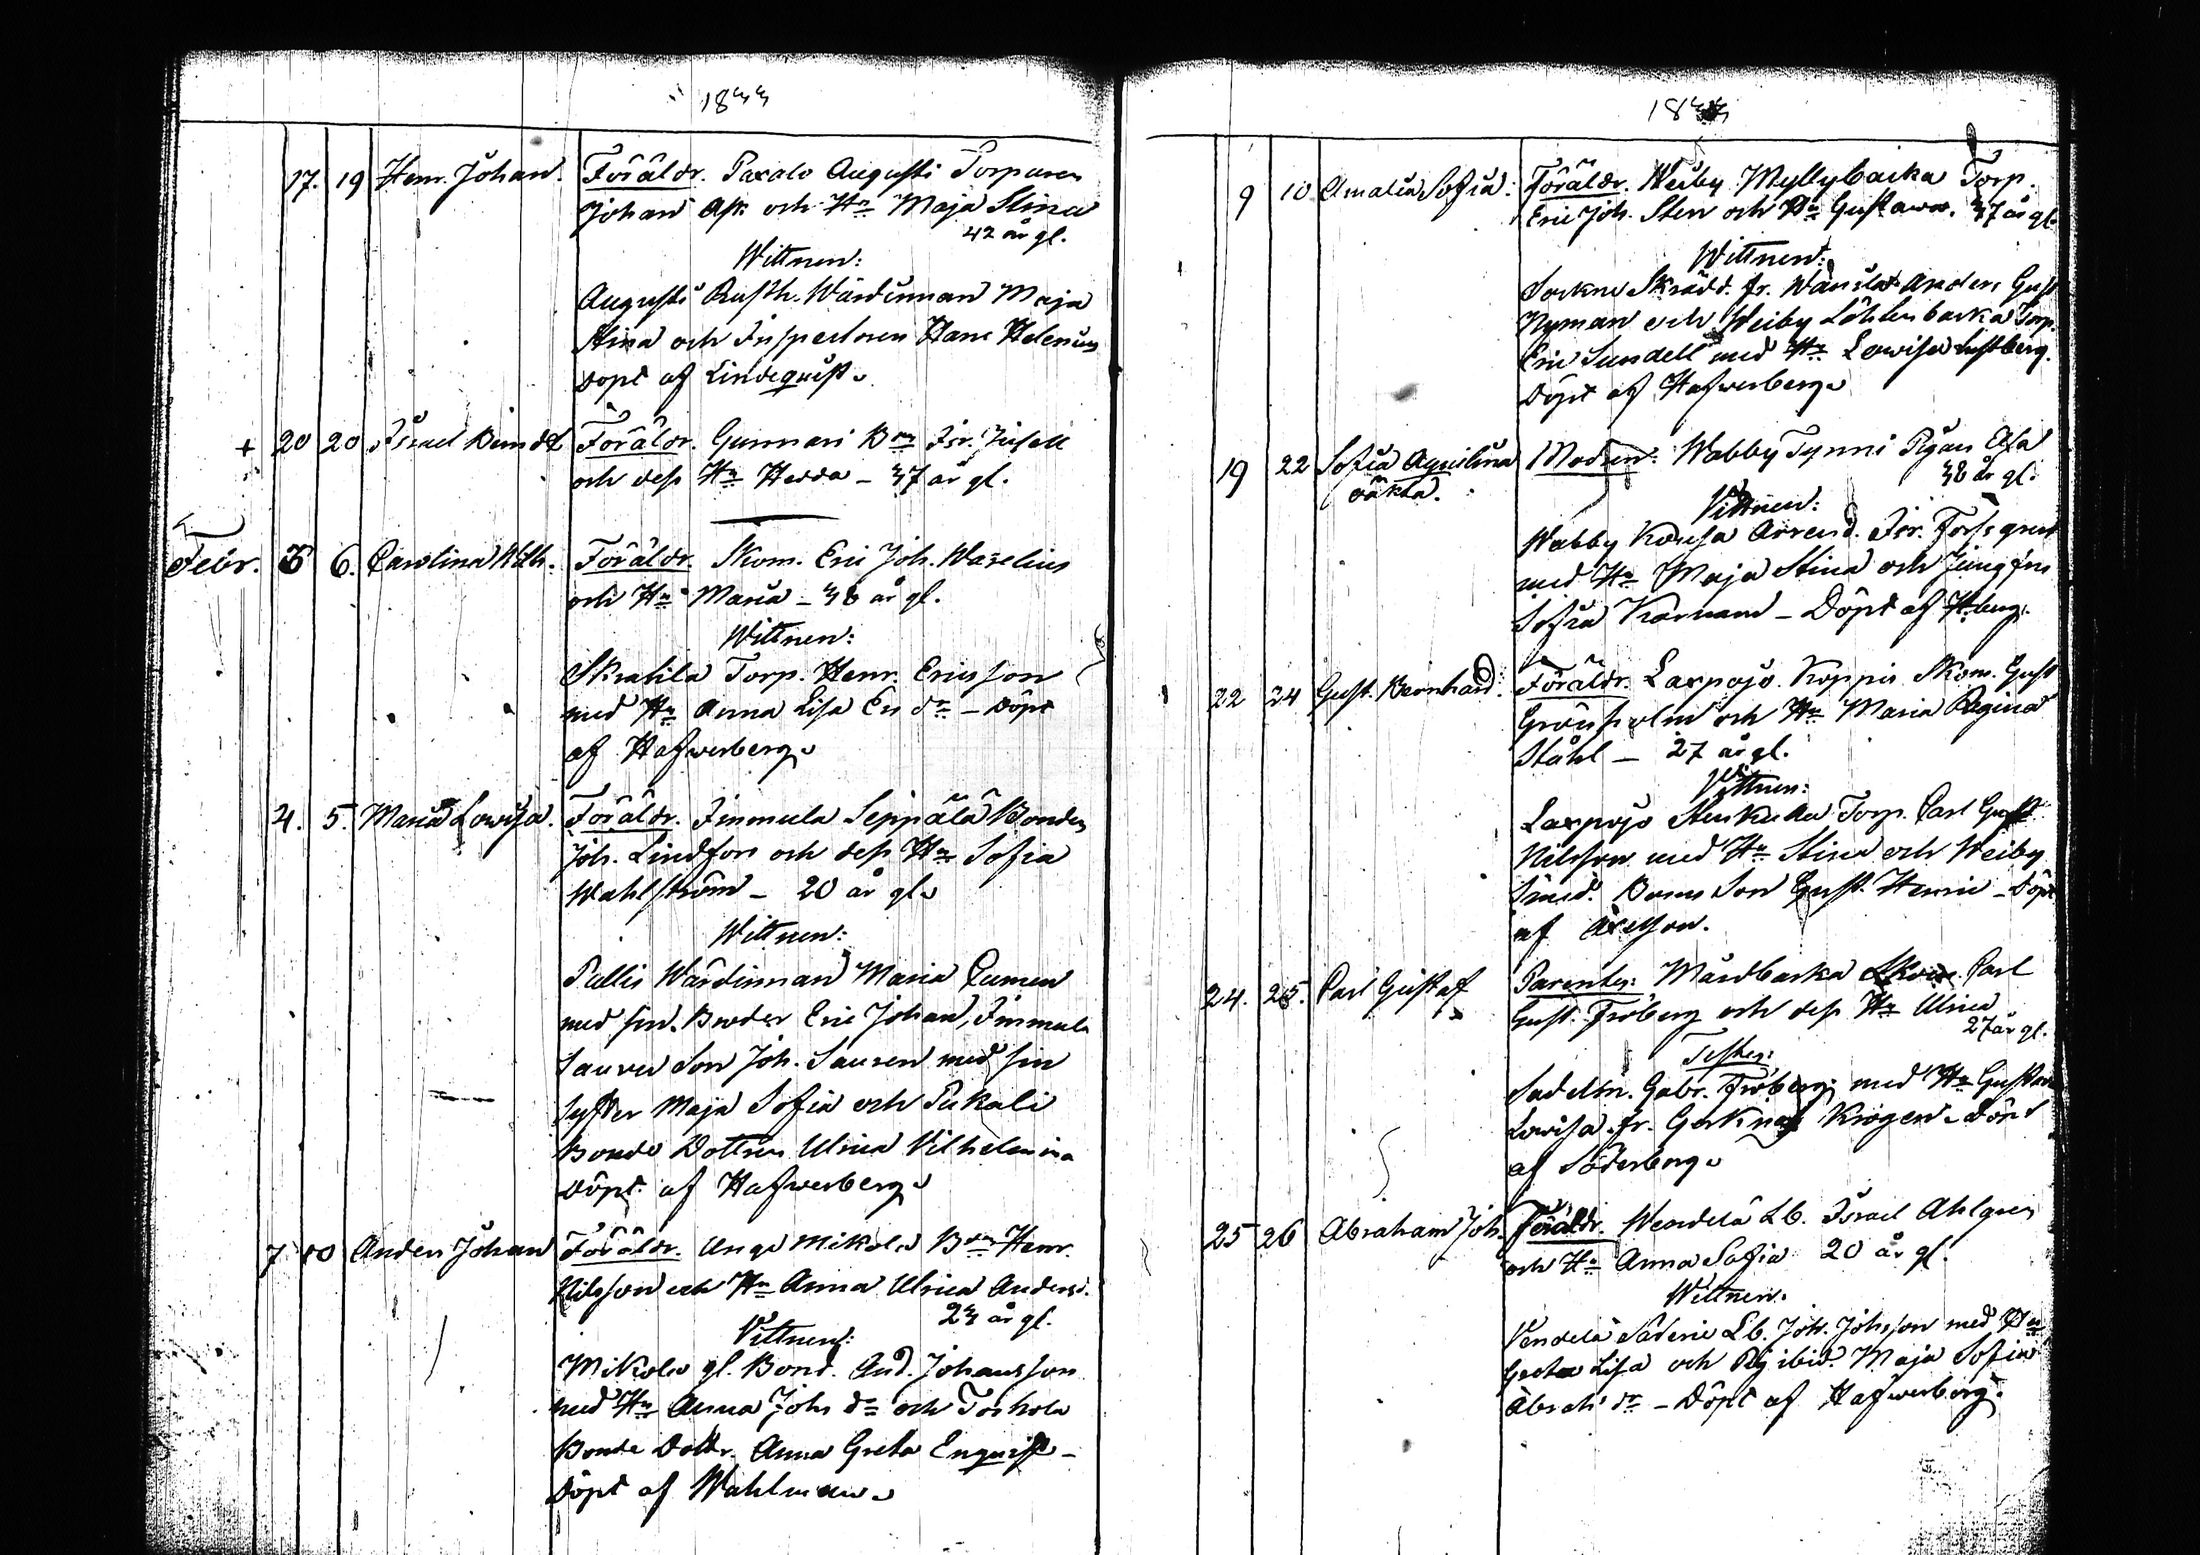 1833
17. 19 Henr. Johan. Föräldr. Paxalo Augusti Torparen
Johan Ask och Hu Maja Stina
42 år gl.
Wittnen:
Augusti Rusth. Wärdinnan Maja
Stina och Inspectoren Hans Helenius
Döpt af Lindequist.
+ 20 20 Israel Berndt Föräldr. Gunnari Bon Isr.
och dess Hu Hedda – 37 år gl.
Febr. 5 6. Carolina Wilh. Föräldr. Skom. Eric Joh. Waxelius
och Hu Maria – 38 år gl.
Wittnen:
Skralila Torp. Henr. Ericsson
med Hu Anna Lisa Er. dr – Döpt
af Hafwerberg
4. 5. Maria Lowisa. Föräldr. Immula Seppälä Bonden
Joh. Lindfors och dess Hu Sofia
Wahlström – 20 år gl.
Wittnen:
Pullis Wärdinnan Maria
med sin Broder Eric Johan, Immula
Sauren Son Joh. Sauren med sin
syster Maja Sofia och Pukali
Bonde Dottren Ulrica Vilhelmina
Döpt af Hafwerberg
7 10 Anders Johan Föräldr. Unga Mikola Bon Henr.
Nilsson och Hu Anna Ulrica Andersd.
23 år gl.
Vittnen:
Mikola gl. Bond. And. Johansson
med Hu Anna Johs dr och Torhola
Bonde Dottr. Anna Greta Enqvist –
Döpt af Wahlman
1833
9 10 Amalia Sofia: Föräldr. Weiby Myllybacka Torp.
Eric Joh. Sten och Hu Gustawa. 37 år gl.
Wittnen:
Sockne Skrädd. fr. Anders Gust
Nyman och Weiby Torp.
Eric Sundell med Hu Lowisa Lustberg.
Döpt af Hafwerberg
19 22 Sofia Aqvilina Modren: Wabby Tynni Pigan
oäkta. 38 år gl.
Vittnen:
Wabby Arrend. Isr. Forsgren
med Hu Maja Stina och Jungfru
Sofia – Döpt af Hberg.
22 24 Gust. Bernhard. Föräldr. Laxpojo Koppis Skom. Gust
Grönholm och Hu Maria Regina
Ståhl – 27 år gl.
Vittnen:
Laxpojo Torp. Carl Gust
Nilsson med Hu Stina och Weiby
Smed. Bonns Son Gust. Henric – Döpt
af Axelson.
24. 25. Carl Gustaf Parentes: Mårdbacka Carl
Gust. Fröberg och dess Hu Ulrica
27 år gl.
Testes:
Sadelm. Gabr. Fröberg med Hu Gustava
Lowisa fr. Gerknäs Krogen – Döpt
af Söderberg
25 26 Abraham Joh. Föräldr. Wendelä Lb. Israel Ahlgren
och Hu Anna Sofia 20 år gl.
Wittnen.
Vendelä Lb. Joh. Johsson med Hu
Greta Lisa och Pig. ibid. Maja Sofia
Abrah. dr – Döpt af Hafwerberg.